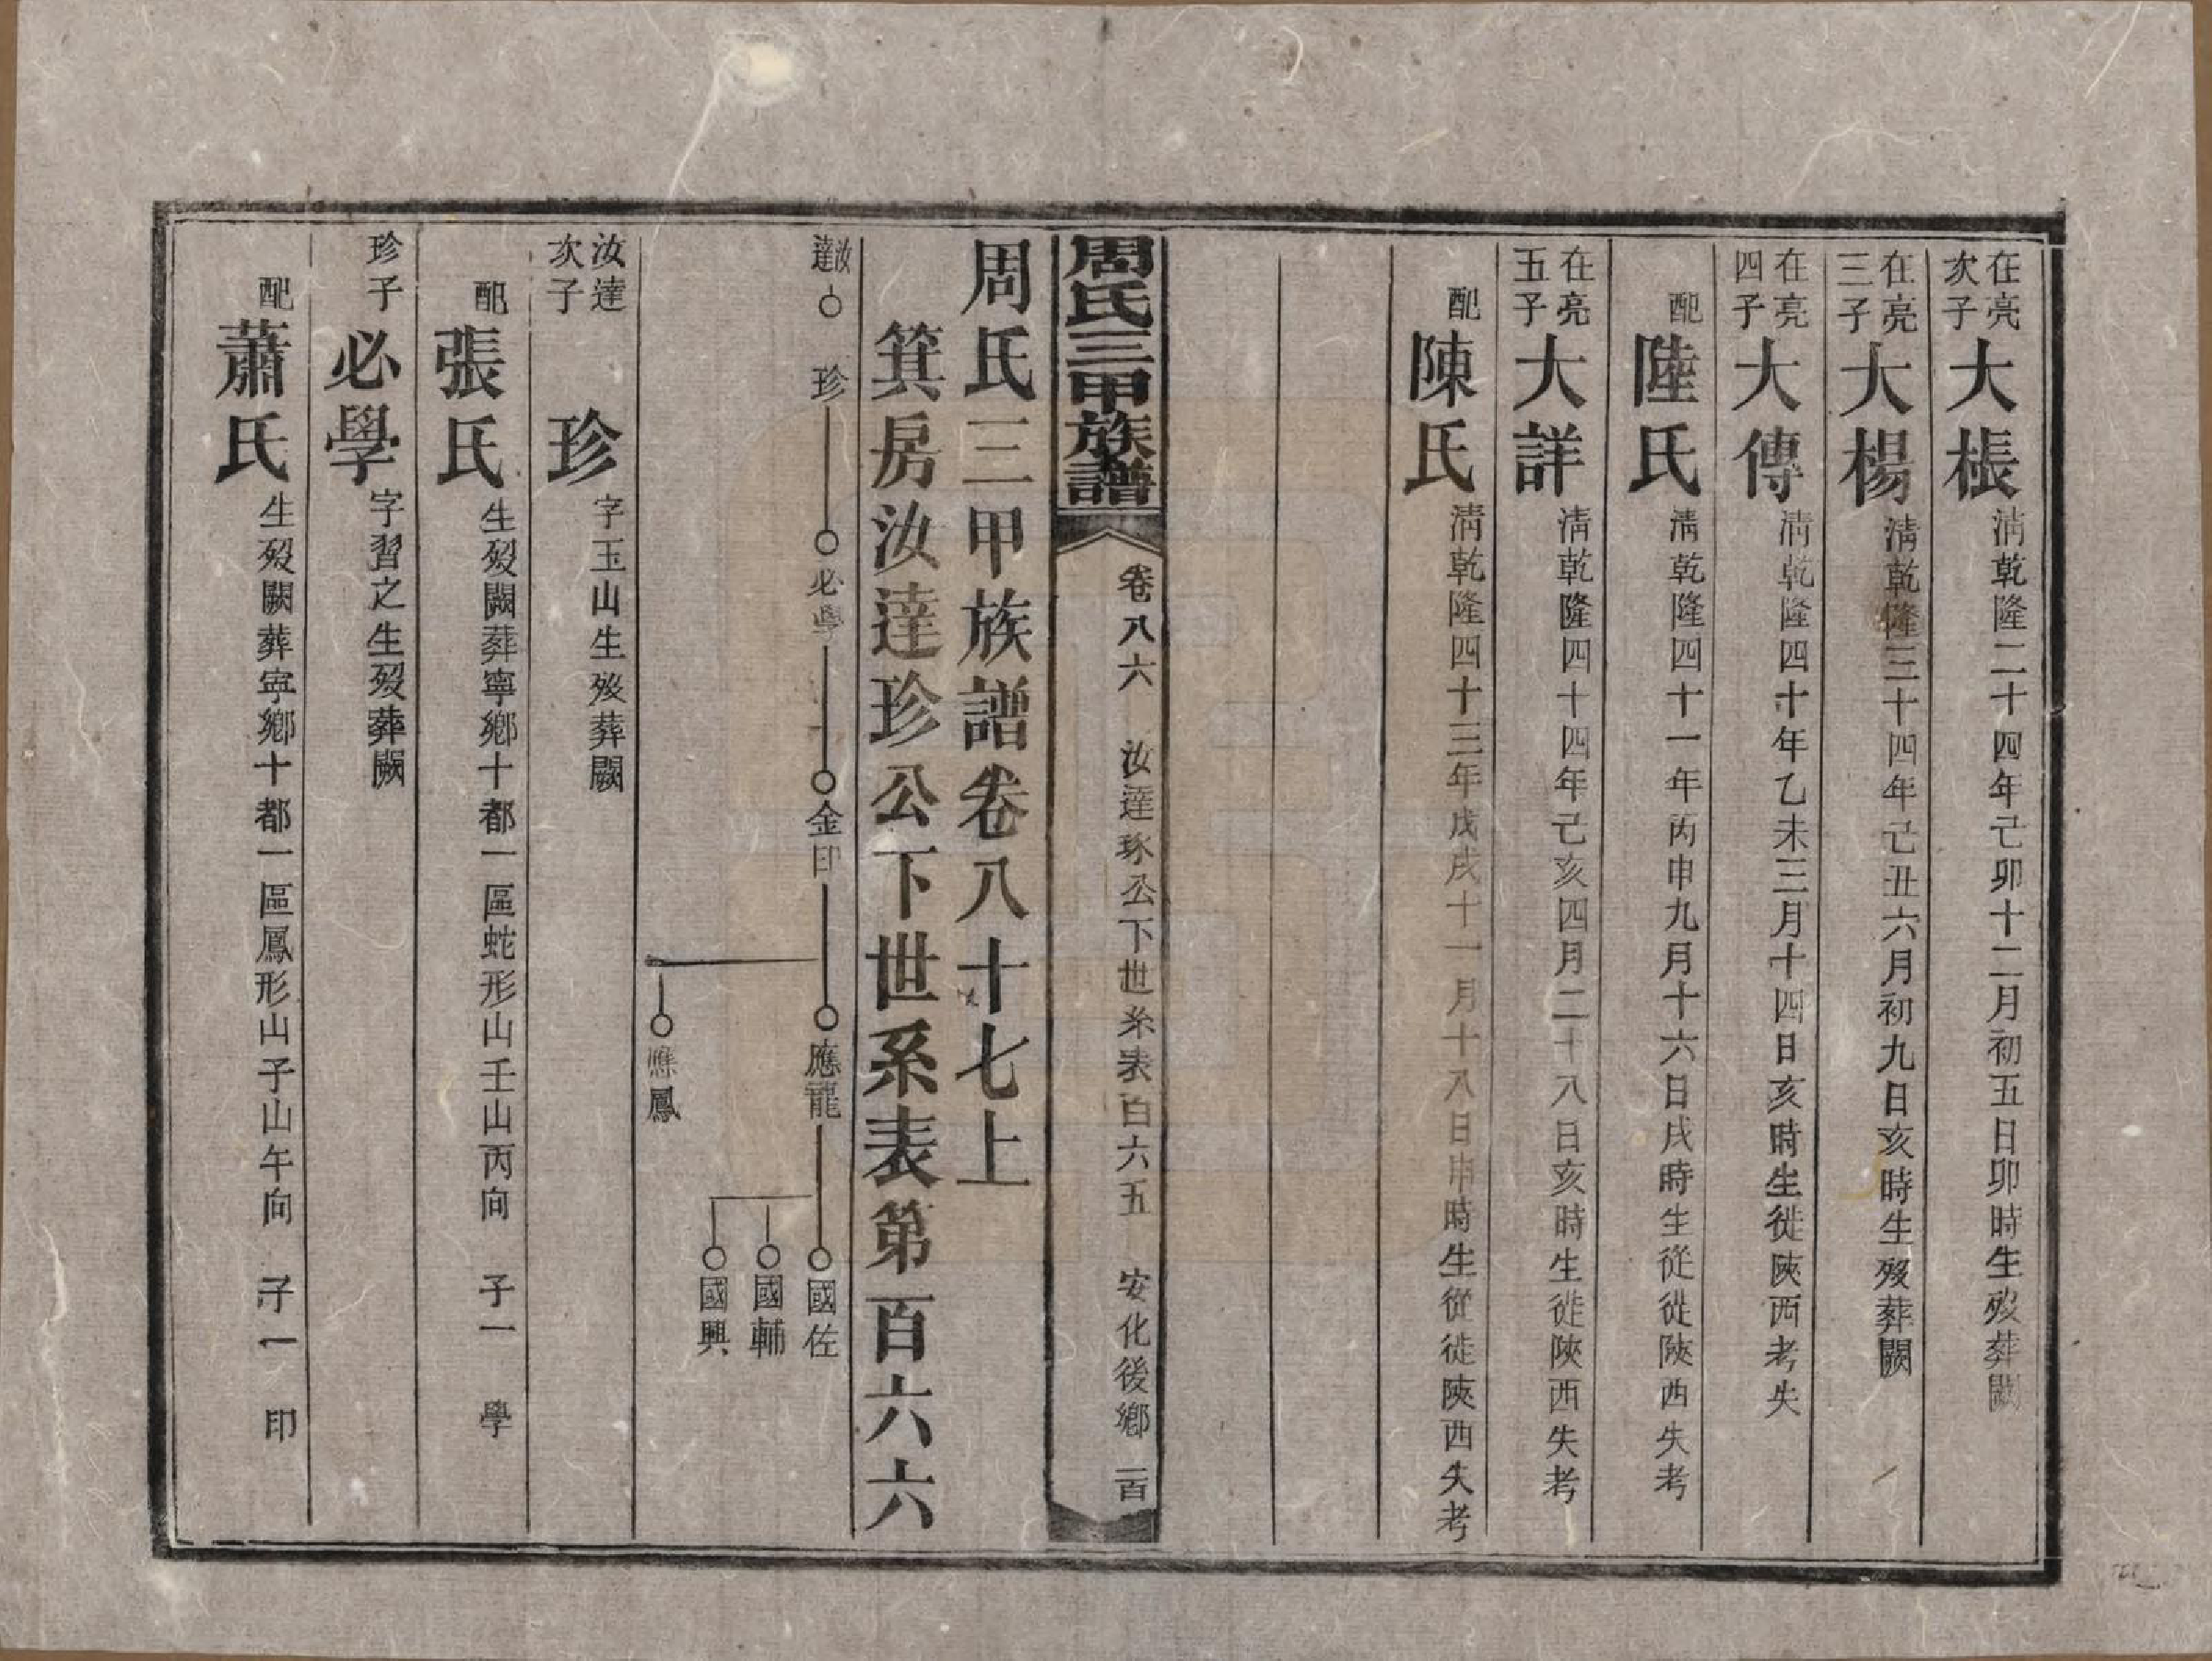 在亮次子大棖清乾隆二十四年己卯十二月初五日卯時生歿葬闕
在亮三子大楊清乾隆三十四年己丑六月初九日亥時生歿葬闕
在亮四子大傳清乾隆四十年乙未三月十四日亥時生徙陝西考失
配陸氏清乾隆四十一年丙申九月十六日戌時生從徙陝西失考
在亮五子大詳清乾隆四十四年己亥四月二十八日亥時生徙陝西失考
配陳氏清乾隆四十三年戊戌十一月十八日申時生從徙陝西失考
周氏三甲族譜 卷八六 汝達琢公下世系表百六五 安化後鄉 一百
周氏三甲族譜卷八十七上
箕房汝達珍公下世系表第百六六
汝達 珍 必學 金印 應龍 國佐
國輔
國興
應鳳
汝達次子珍字玉山生歿葬闕
配張氏生歿闕葬寧鄉十都一區蛇形山壬山丙向 子一 學
珍子必學字習之生歿葬闕
配蕭氏生歿闕葬寧鄉十都一區鳳形山子山午向 子一 印